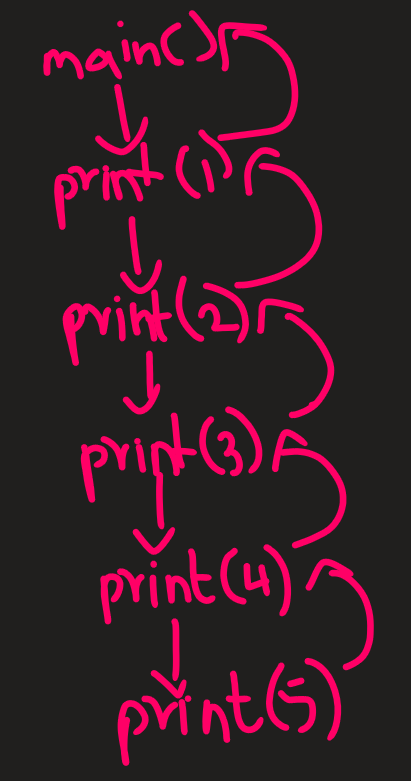 main()
print(1)
print(2)
print(3)
print(4)
print(5)